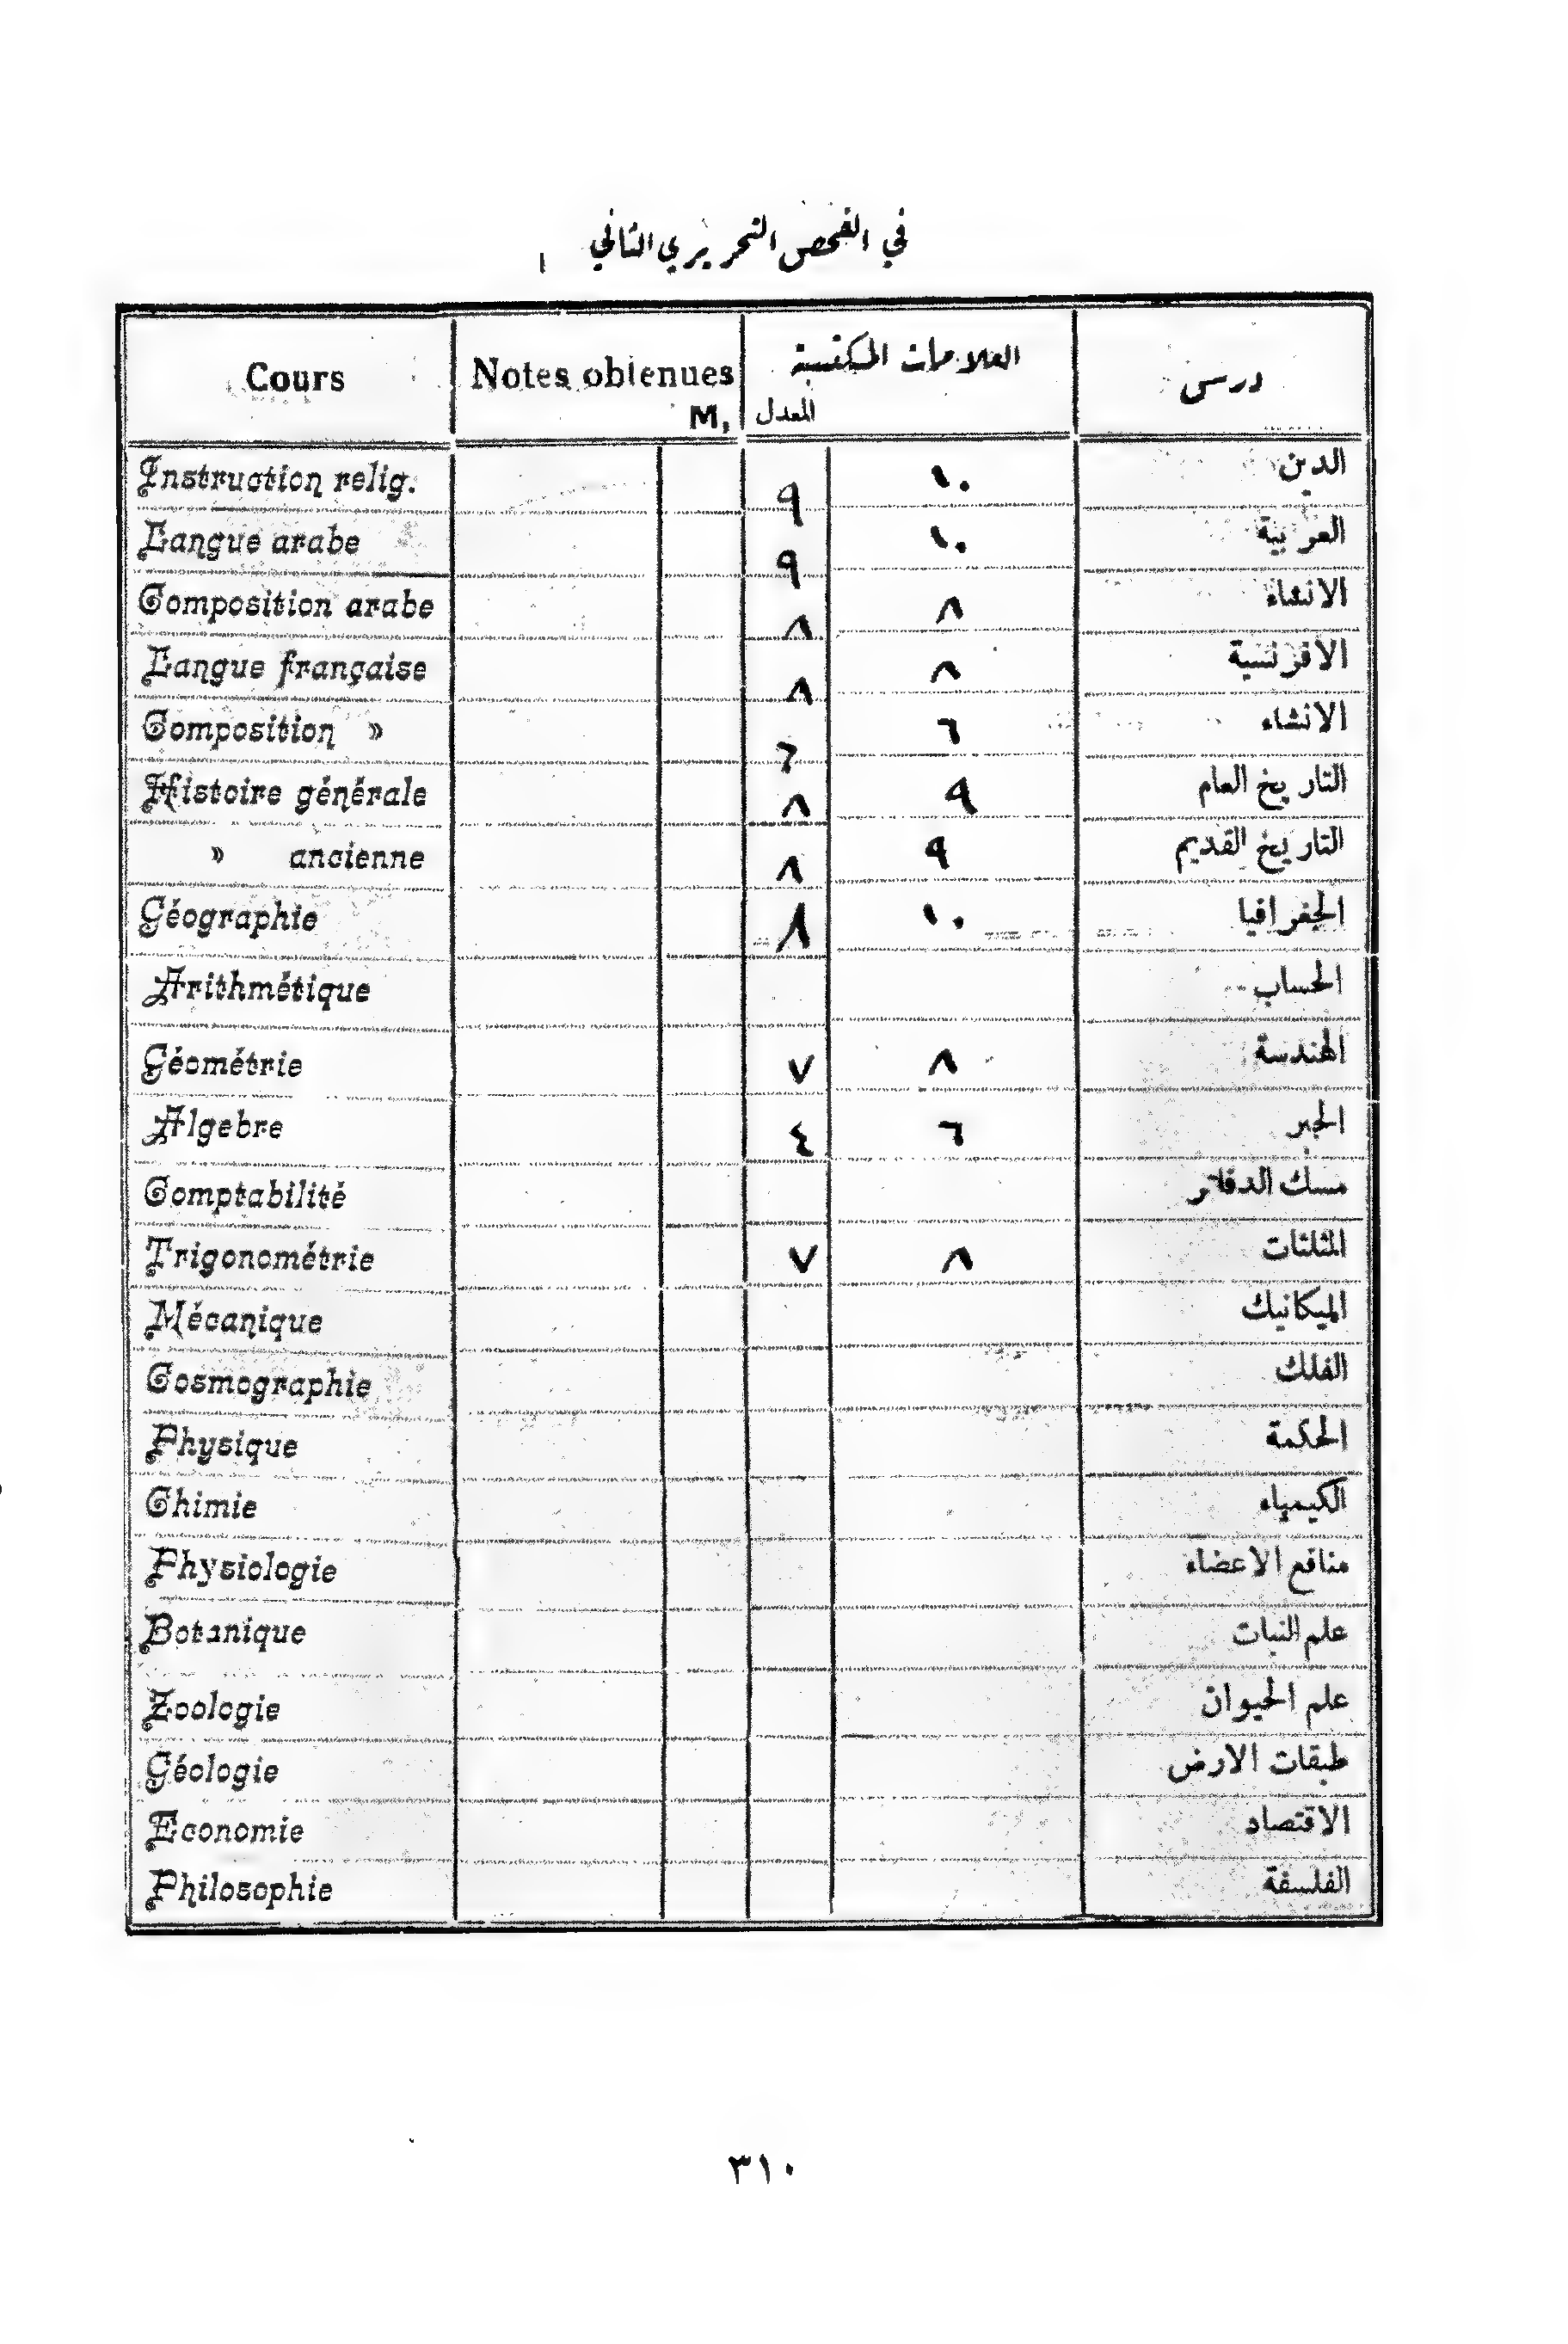 في الفحص التحريري الثاني
Cours Notes obtenues العلامات المكتسبة درس
M, المعدل
Instruction relig. ٩ ١٠ الدين
Langue arabe ٩ ١٠ العربية
Composition arabe ٨ ٨ الانشاء
Langue française ٨ ٨ الافرنسية
Composition » ٦ ٦ الانشاء
Histoire générale ٨ ٩ التاريخ العام
» ancienne ٨ ٩ التاريخ القديم
Géographie ٨ ١٠ الجغرافيا
Arithmétique الحساب
Géométrie ٧ ٨ الهندسة
Algebre ٤ ٦ الجبر
Comptabilité مسك الدفاتر
Trigonométrie ٧ ٨ المثلثات
Mécanique الميكانيك
Cosmographie الفلك
Physique الحكمة
Chimie الكيمياء
Physiologie منافع الاعضاء
Botanique علم النبات
Zoologie علم الحيوان
Géologie طبقات الارض
Economie الاقتصاد
Philosophie الفلسفة
٣١٠